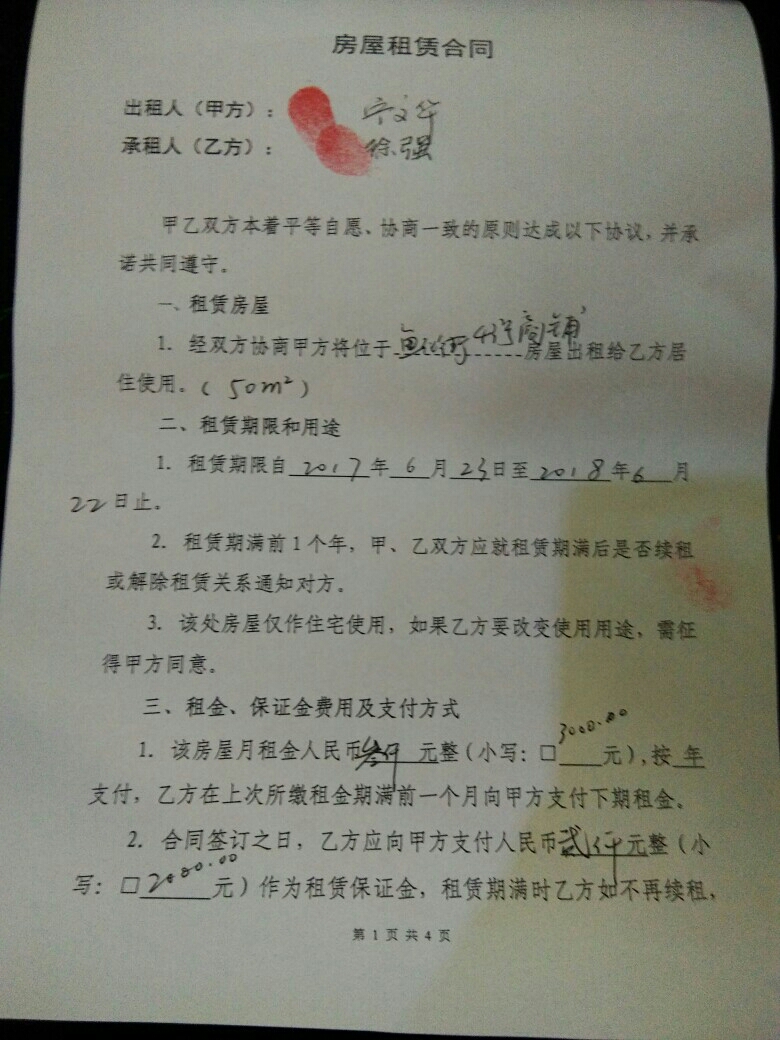 房屋租赁合同
出租人（甲方）： 文华
承租人（乙方）： 徐强
甲乙双方本着平等自愿、协商一致的原则达成以下协议，并承
诺共同遵守。
一、租赁房屋
1. 经双方协商甲方将位于鱼化街4号商铺房屋出租给乙方居
住使用。（50m²）
二、租赁期限和用途
1. 租赁期限自2017年6月23日至2018年6月
22日止。
2. 租赁期满前1个年，甲、乙双方应就租赁期满后是否续租
或解除租赁关系通知对方。
3. 该处房屋仅作住宅使用，如果乙方要改变使用用途，需征
得甲方同意。
三、租金、保证金费用及支付方式
1. 该房屋月租金人民币叁仟元整（小写：□3000.00元），按年
支付，乙方在上次所缴租金期满前一个月向甲方支付下期租金。
2. 合同签订之日，乙方应向甲方支付人民币贰仟元整（小
写：□2000.00元）作为租赁保证金，租赁期满时乙方如不再续租，
第1页共4页